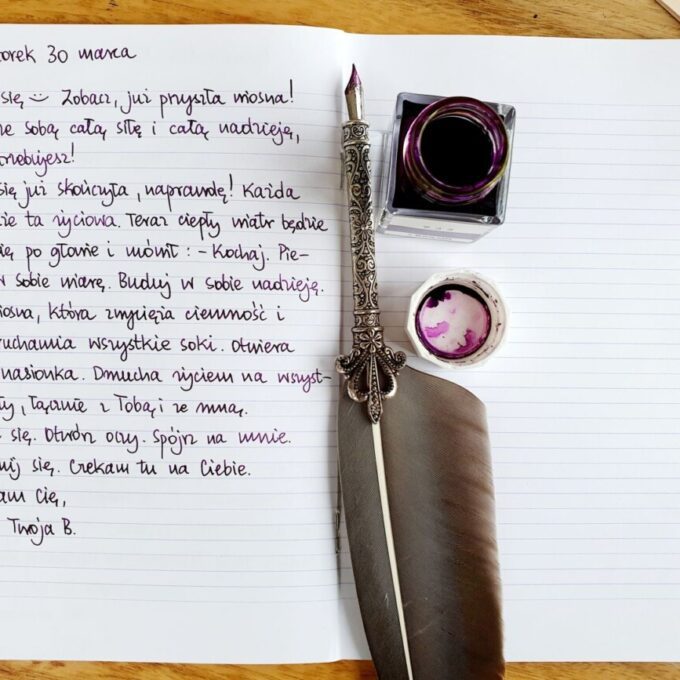 orek 30 marca
się Zobacz, już przyszła wiosna!
ze sobą całą siłę i całą nadzieję,
rzebujesz!
się już skończyła, naprawdę! Każda
ie ta życiowa. Teraz ciepły wiatr będzie
ię po głowie i mówił: - Kochaj. Pie-
w sobie wiarę. Buduj w sobie nadzieję.
iosna, która zwycięża ciemność i
ruchamia wszystkie soki. Otwiera
nasionka. Dmucha życiem na wszyst-
ły, łącznie z Tobą i ze mną.
się. Otwórz oczy. Spójrz na mnie.
nij się. Czekam tu na Ciebie.
am Cię,
Twoja B.